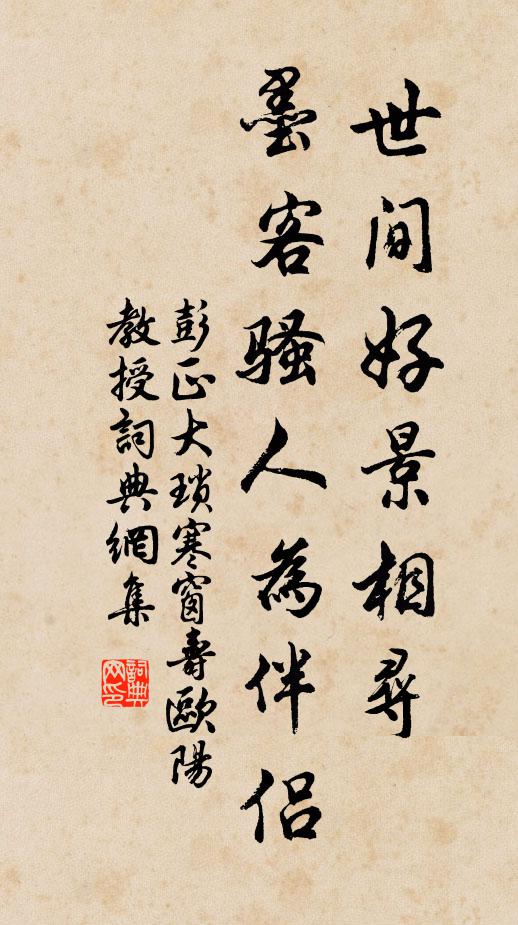 世間好景相尋
墨客騷人為伴侶
彭正大瑣寒窗壽歐陽
教授詞典網集
詞典
网印